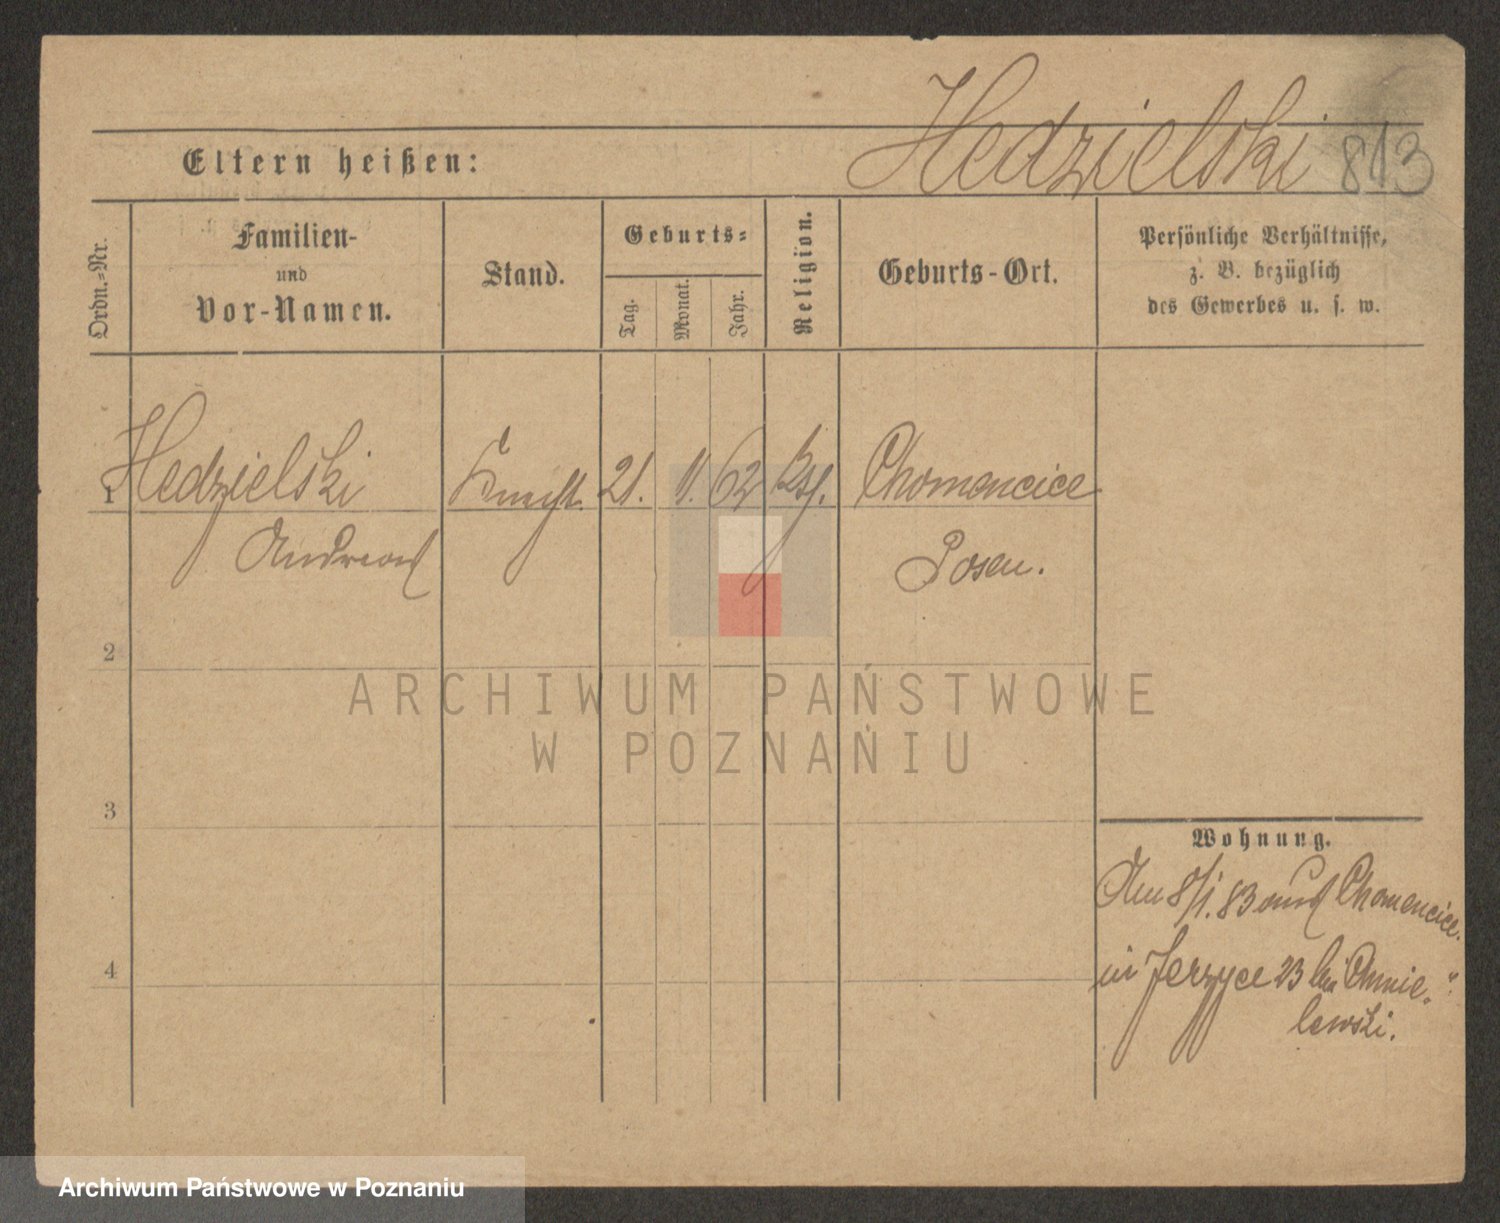 Hedzielski 813
Eltern heißen:
Ordn.-Nr.
Familien-
und
Vor-Namen.
Stand.
Geburts-
Tag.
Monat.
Jahr.
Religion.
Geburts-Ort.
Persönliche Verhältnisse,
z. B. bezüglich
des Gewerbes u. s. w.
1 Hedzielski Knecht 21. 11. 62 Chomencice
Andreas Posen.
2
ARCHIWUM PAŃSTWOWE
W POZNANIU
3
Wohnung.
Am 8/1. 83 aus Chomencice.
4
in Jerzyce 23 bei Chmie-
lewski.
Archiwum Państwowe w Poznaniu